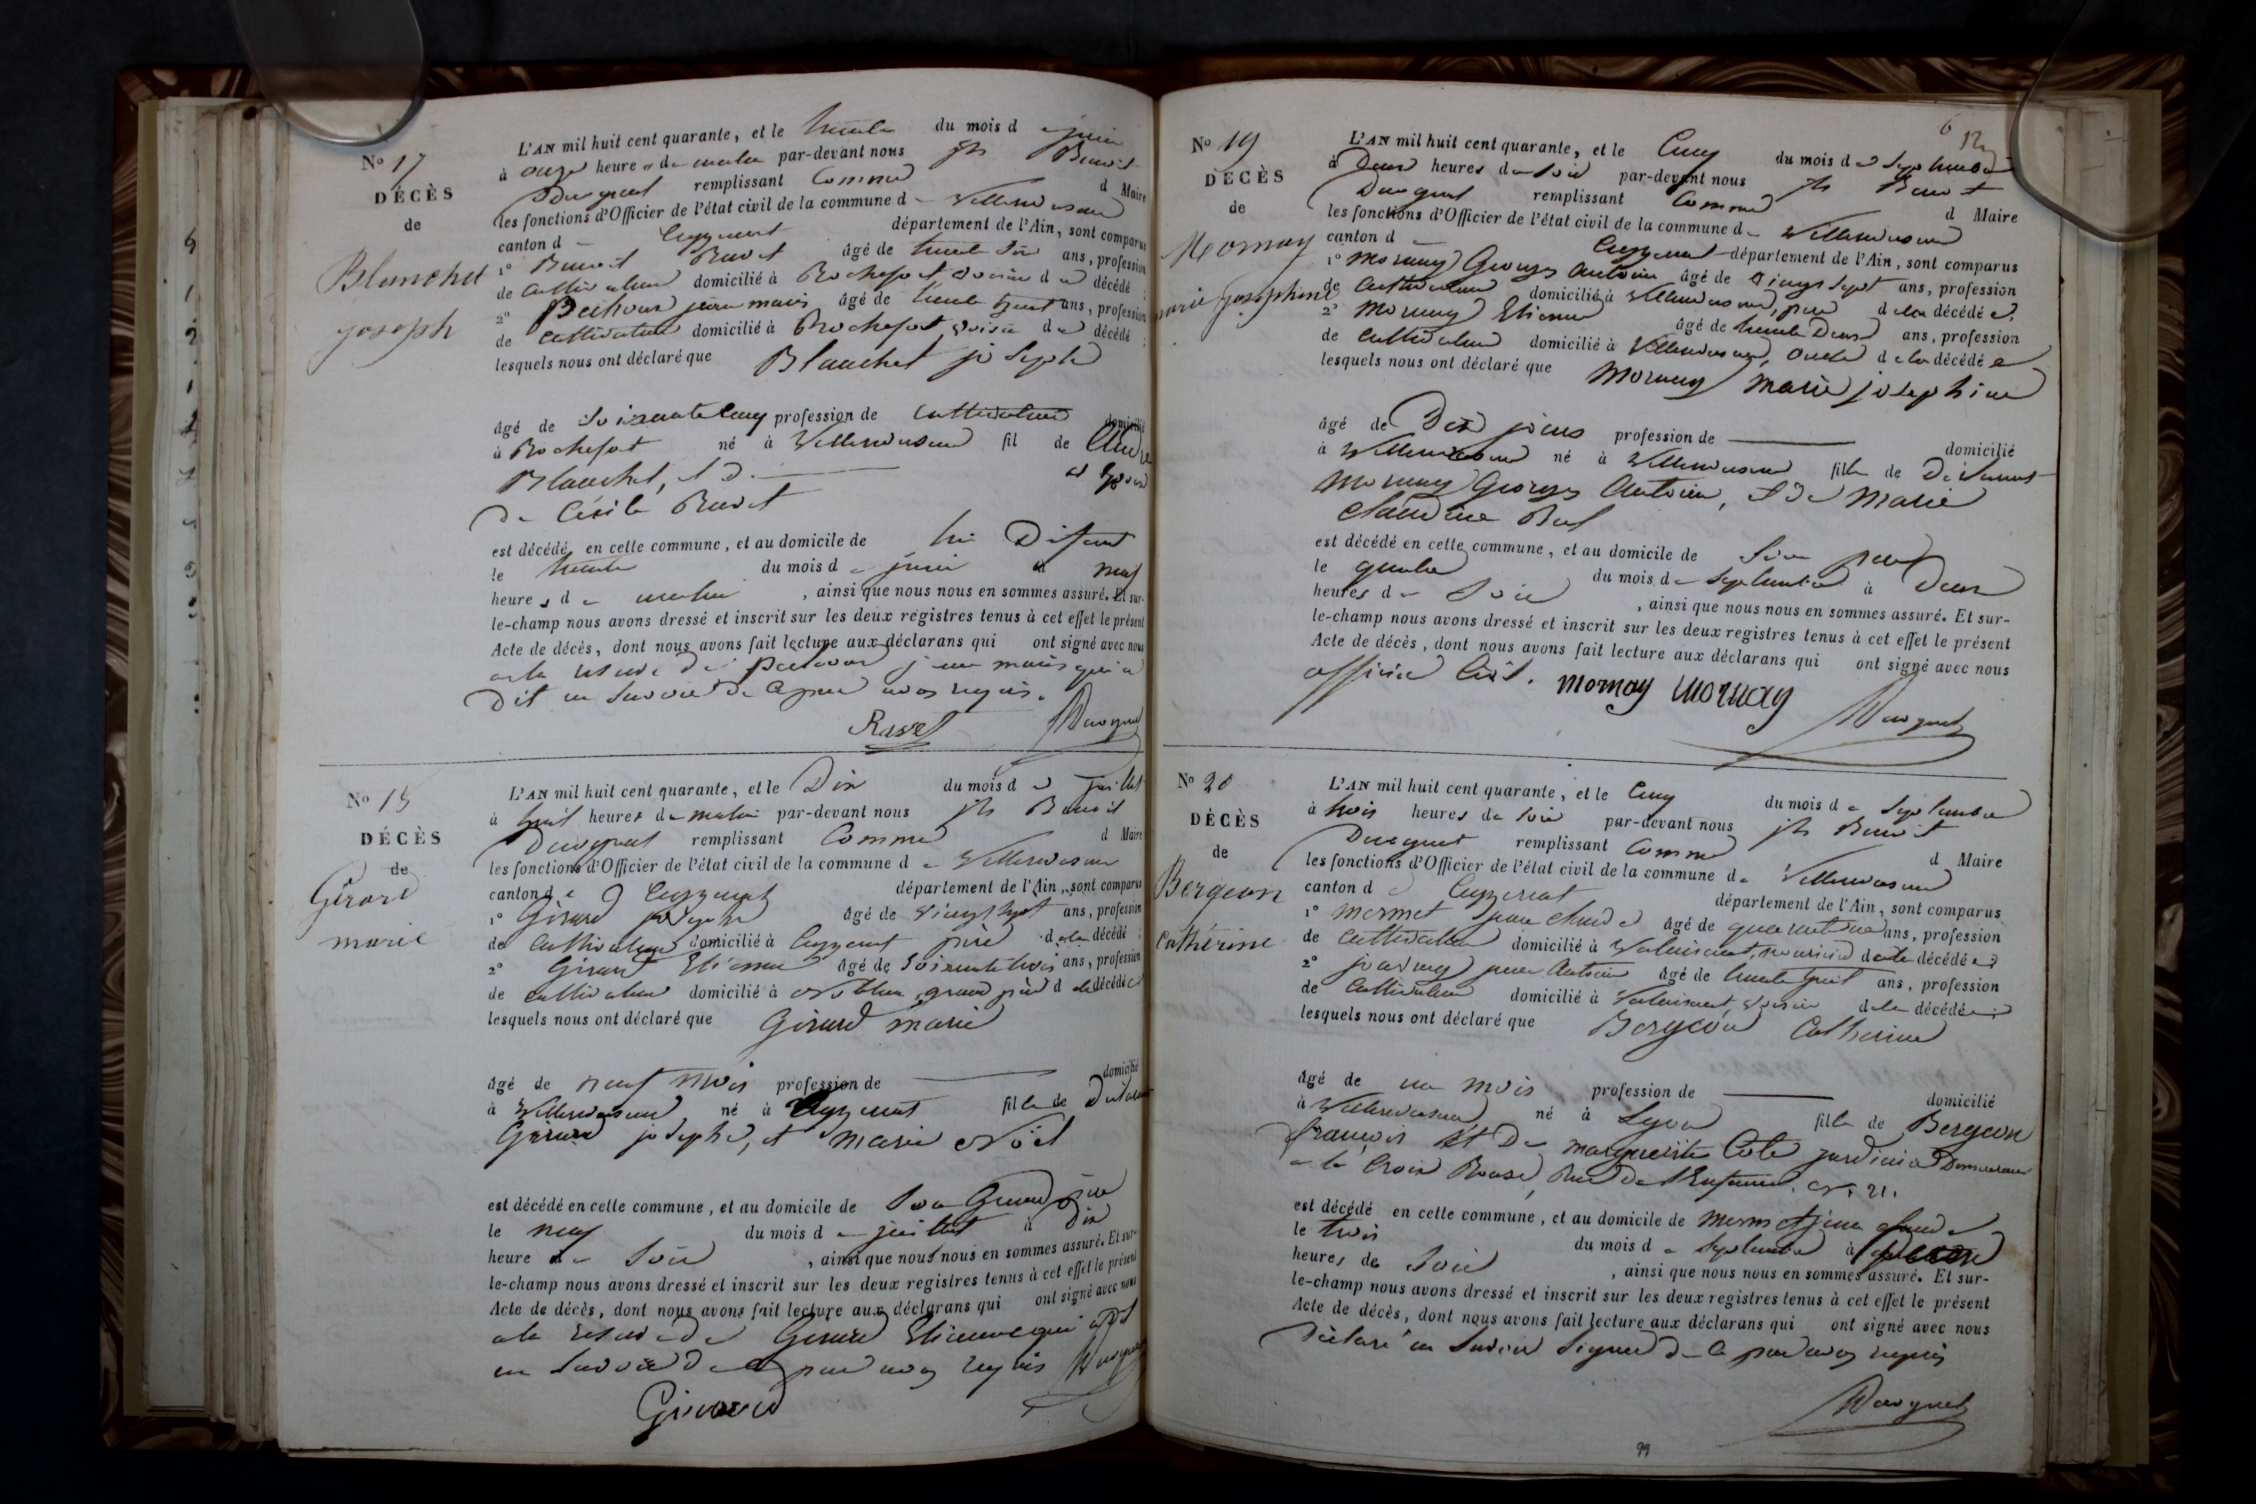 N° 17
DÉCÈS
de
Blanchet
joseph
L'AN mil huit cent quarante, et le trente du mois de juin
à onze heures du matin par-devant nous Jh Benoit
remplissant comme d Maire
les fonctions d'Officier de l'état civil de la commune de Villereversure
canton de Ceyzeriat département de l'Ain, sont comparus
1° Benoit Ravet âgé de trente ans, profession
de cultivateur domicilié à Rochefort voisin du décédé ;
2° jean marie âgé de trente huit ans, profession
de cultivateur domicilié à Rochefort, voisin du décédé ;
lesquels nous ont déclaré que Blanchet joseph
âgé de soixante cinq profession de cultivateur domicilié
à Rochefort né à Villereversure fil de
Blanchet, et d
de Cécile Ravet
est décédé en cette commune, et au domicile de lui Défunt
le trente du mois de juin à neuf
heures du matin, ainsi que nous nous en sommes assuré. Et sur-
le-champ nous avons dressé et inscrit sur les deux registres tenus à cet effet le présent
Acte de décès, dont nous avons fait lecture aux déclarans qui ont signé avec nous
a la réserve de jean marie qui a
dit ne savoir de ce par nous requis.
Ravet
N° 18
DÉCÈS
de
Girard
marie
L'AN mil huit cent quarante, et le Dix du mois de juillet
à huit heures du matin par-devant nous Jh Benoit
remplissant comme d Maire
les fonctions d'Officier de l'état civil de la commune de Villereversure
canton de Ceyzeriat département de l'Ain, sont comparus
1° Girard joseph âgé de vingt sept ans, profession
de cultivateur domicilié à Ceyzeriat père de la décédé ;
2° Girard Etienne âgé de soixante trois ans, profession
de cultivateur domicilié à grand père de la décédée
lesquels nous ont déclaré que Girard marie
âgé de neuf mois profession de domicilié
à Villereversure né à Ceyzeriat fille de
Girard joseph, et marie Noël
est décédé en cette commune, et au domicile de son Grand père
le neuf du mois de juillet à dix
heure du soir, ainsi que nous nous en sommes assuré. Et sur-
le-champ nous avons dressé et inscrit sur les deux registres tenus à cet effet le présent
Acte de décès, dont nous avons fait lecture aux déclarans qui ont signé avec nous
a la réserve de Girard Etienne qui a dit
ne savoir de ce par nous requis
Girard
6
N° 19
DÉCÈS
de
Mornay
marie josephine
L'AN mil huit cent quarante, et le Cinq du mois de Septembre
à Deux heures du soir par-devant nous Jh Benoit
remplissant comme d Maire
les fonctions d'Officier de l'état civil de la commune de Villereversure
canton d Ceyzeriat département de l'Ain, sont comparus
1° Mornay Georges Antoine âgé de vingt sept ans, profession
de cultivateur domicilié à Villereversure, père de la décédée.
2° Mornay Etienne âgé de trente Deux ans, profession
de cultivateur domicilié à Villereversure, oncle de la décédée
lesquels nous ont déclaré que Mornay marie josephine
âgé de Dix jours profession de domicilié
à Villereversure né à Villereversure fille de
Mornay Georges Antoine, et de Marie
Claudine
est décédé en cette commune, et au domicile de son père
le quatre du mois de Septembre à Deux
heures du soir, ainsi que nous nous en sommes assuré. Et sur-
le-champ nous avons dressé et inscrit sur les deux registres tenus à cet effet le présent
Acte de décès, dont nous avons fait lecture aux déclarans qui ont signé avec nous
officier Civil. mornay mornay
N° 20
DÉCÈS
de
Bergeon
Cathérine
L'AN mil huit cent quarante, et le Cinq du mois de Septembre
à trois heures du soir par-devant nous jh Benoit
remplissant comme d Maire
les fonctions d'Officier de l'état civil de la commune de Villereversure
canton d Ceyzeriat département de l'Ain, sont comparus
1° mermet jean claude âgé de ans, profession
de cultivateur domicilié à de la décédée
2° jean Antoine âgé de trente huit ans, profession
de cultivateur domicilié à voisin de la décédée
lesquels nous ont déclaré que Bergeon Catherine
âgé de un mois profession de domicilié
à Villereversure né à Lyon fille de Bergeon
françois et de marguerite Cote jardinier demeurant
a la Croix Rousse, Rue de l'Enfance. N. 21.
est décédé en cette commune, et au domicile de mermet jean claude
le trois du mois de Septembre à
heures du soir, ainsi que nous nous en sommes assuré. Et sur-
le-champ nous avons dressé et inscrit sur les deux registres tenus à cet effet le présent
Acte de décès, dont nous avons fait lecture aux déclarans qui ont signé avec nous
Déclaré ne savoir signer de ce par nous requis
99